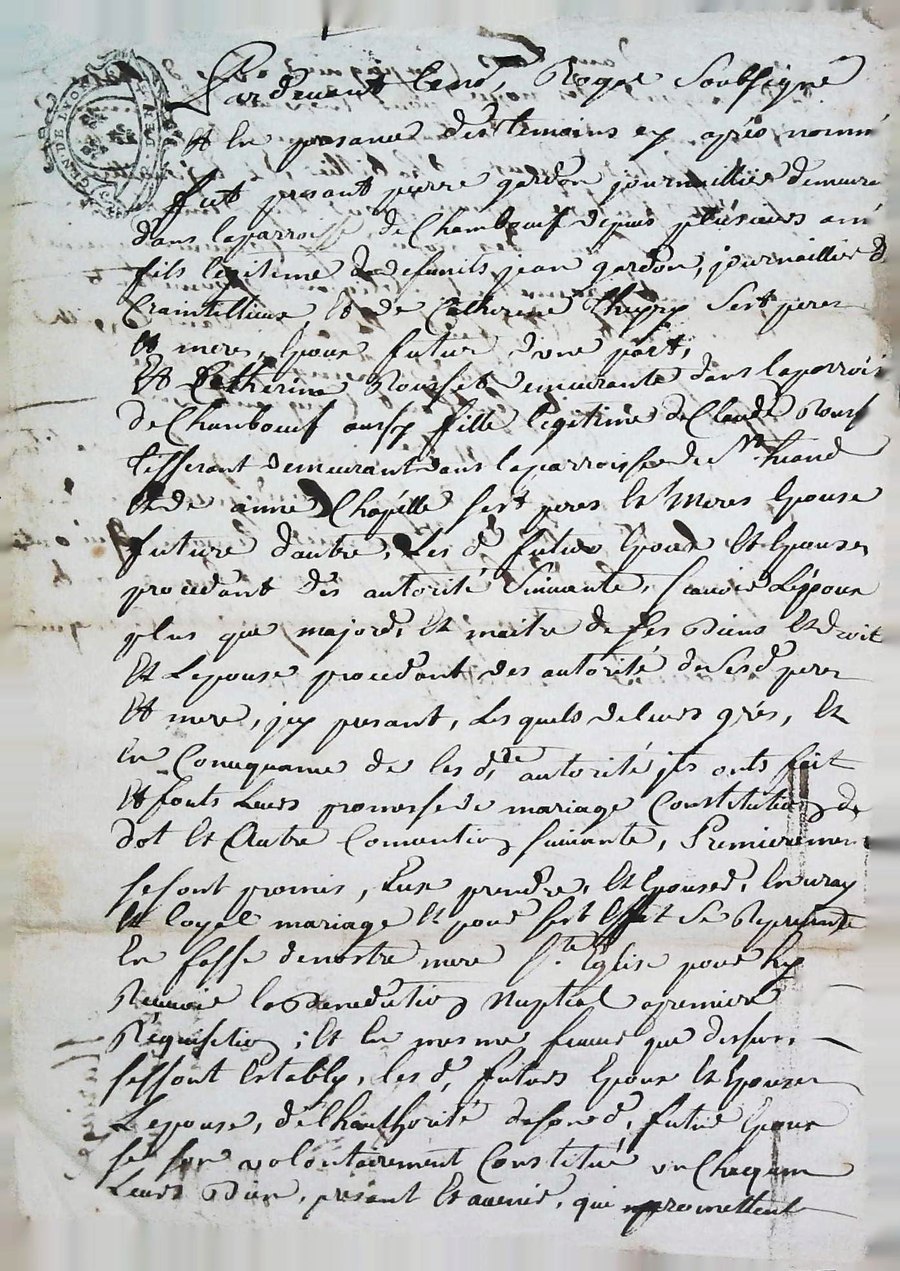 Pardevant le no.re Royal Soubsigné
et En presance des temoins cy aprés nommé
fut present pierre gardon journaillier demeura
dans laparroisse de Chambœuf depuis plusieurs anné
fils legitime de defunts jean gardon, journaillier d
Craintillieux et de Catherine sest peres
et meres, Epoux futur d'une part,
Et Catherine Rousset demeurante dans laparrois
de Chambœuf aussy fille legitime de Claude Rouss
tisserant demeurant dans laparroisse de St heand
et de anne Chapelle sest peres et Meres Epouse
future dautre, Les d. futurs Epoux et Epouse
procedant des autorité Suivante, scavoir L'époux
plus que majord, et maitre de ses Biens et droit
Et Lepouse procedant des autorité de sesd peres
et mere, jcy presant, Lesquels deleurs grés, et
en Consequance de lesd.te autorité jls onts fait
et fonts Leurs promesse de mariage Constitution de
dot et Autre Convention suivante, Premieremen
se sont promis, Eux prendre, et Epouser, En vray
et loyal mariage et pour set Effet se Represante
En fasse de nostre mere S.te Eglise pour hy
Recevoir la Benediction Nuptial apremiere
Requisition ; et En mesme faveur que dessus,
sessont Establys, les d. futurs Epoux et Epouse
Lepouse, de lhauthorité desond. futur Epoux
se son volontairement Constitué un Chacquun
Leurs Bien, présant Et avenir, qui promettent